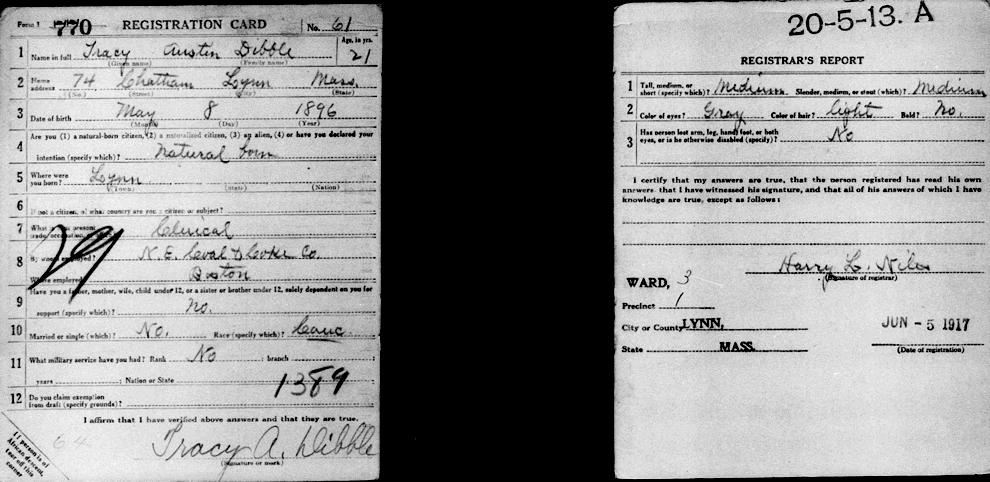 Form 1 770 REGISTRATION CARD No. 61
1 Name in full Tracy Austin Dibble Age, in yrs. 21
(Given name) (Family name)
2 Home address 74 Chatham Lynn Mass.
(No.) (Street) (City) (State)
3 Date of birth May 8 1896
(Month) (Day) (Year)
4 Are you (1) a natural-born citizen, (2) a naturalized citizen, (3) an alien, (4) or have you declared your
intention (specify which)? Natural born
5 Where were you born? Lynn
(Town) (State) (Nation)
6 If not a citizen, of what country are you a citizen or subject?
7 What is your present trade, occupation, or office? Clerical
8 By whom employed? N.E. Coal & Coke Co.
Where employed? Boston
29
9 Have you a father, mother, wife, child under 12, or a sister or brother under 12, solely dependent on you for
support (specify which)? No.
10 Married or single (which)? No. Race (specify which)? Cauc
11 What military service have you had? Rank No ; branch ;
years ; Nation or State
1389
12 Do you claim exemption from draft (specify grounds)?
I affirm that I have verified above answers and that they are true.
64
Tracy A. Dibble
(Signature or mark)
If person is of
African descent,
tear off this
corner
20-5-13. A
REGISTRAR'S REPORT
1 Tall, medium, or short (specify which)? Medium Slender, medium, or stout (which)? Medium
2 Color of eyes? Gray Color of hair? light Bald? No.
3 Has person lost arm, leg, hand, foot, or both
eyes, or is he otherwise disabled (specify)? No
I certify that my answers are true, that the person registered has read his own
answers, that I have witnessed his signature, and that all of his answers of which I have
knowledge are true, except as follows:
Harry L. Niles
(Signature of registrar)
WARD, 3
Precinct 1
City or County LYNN, JUN - 5 1917
State MASS. (Date of registration)